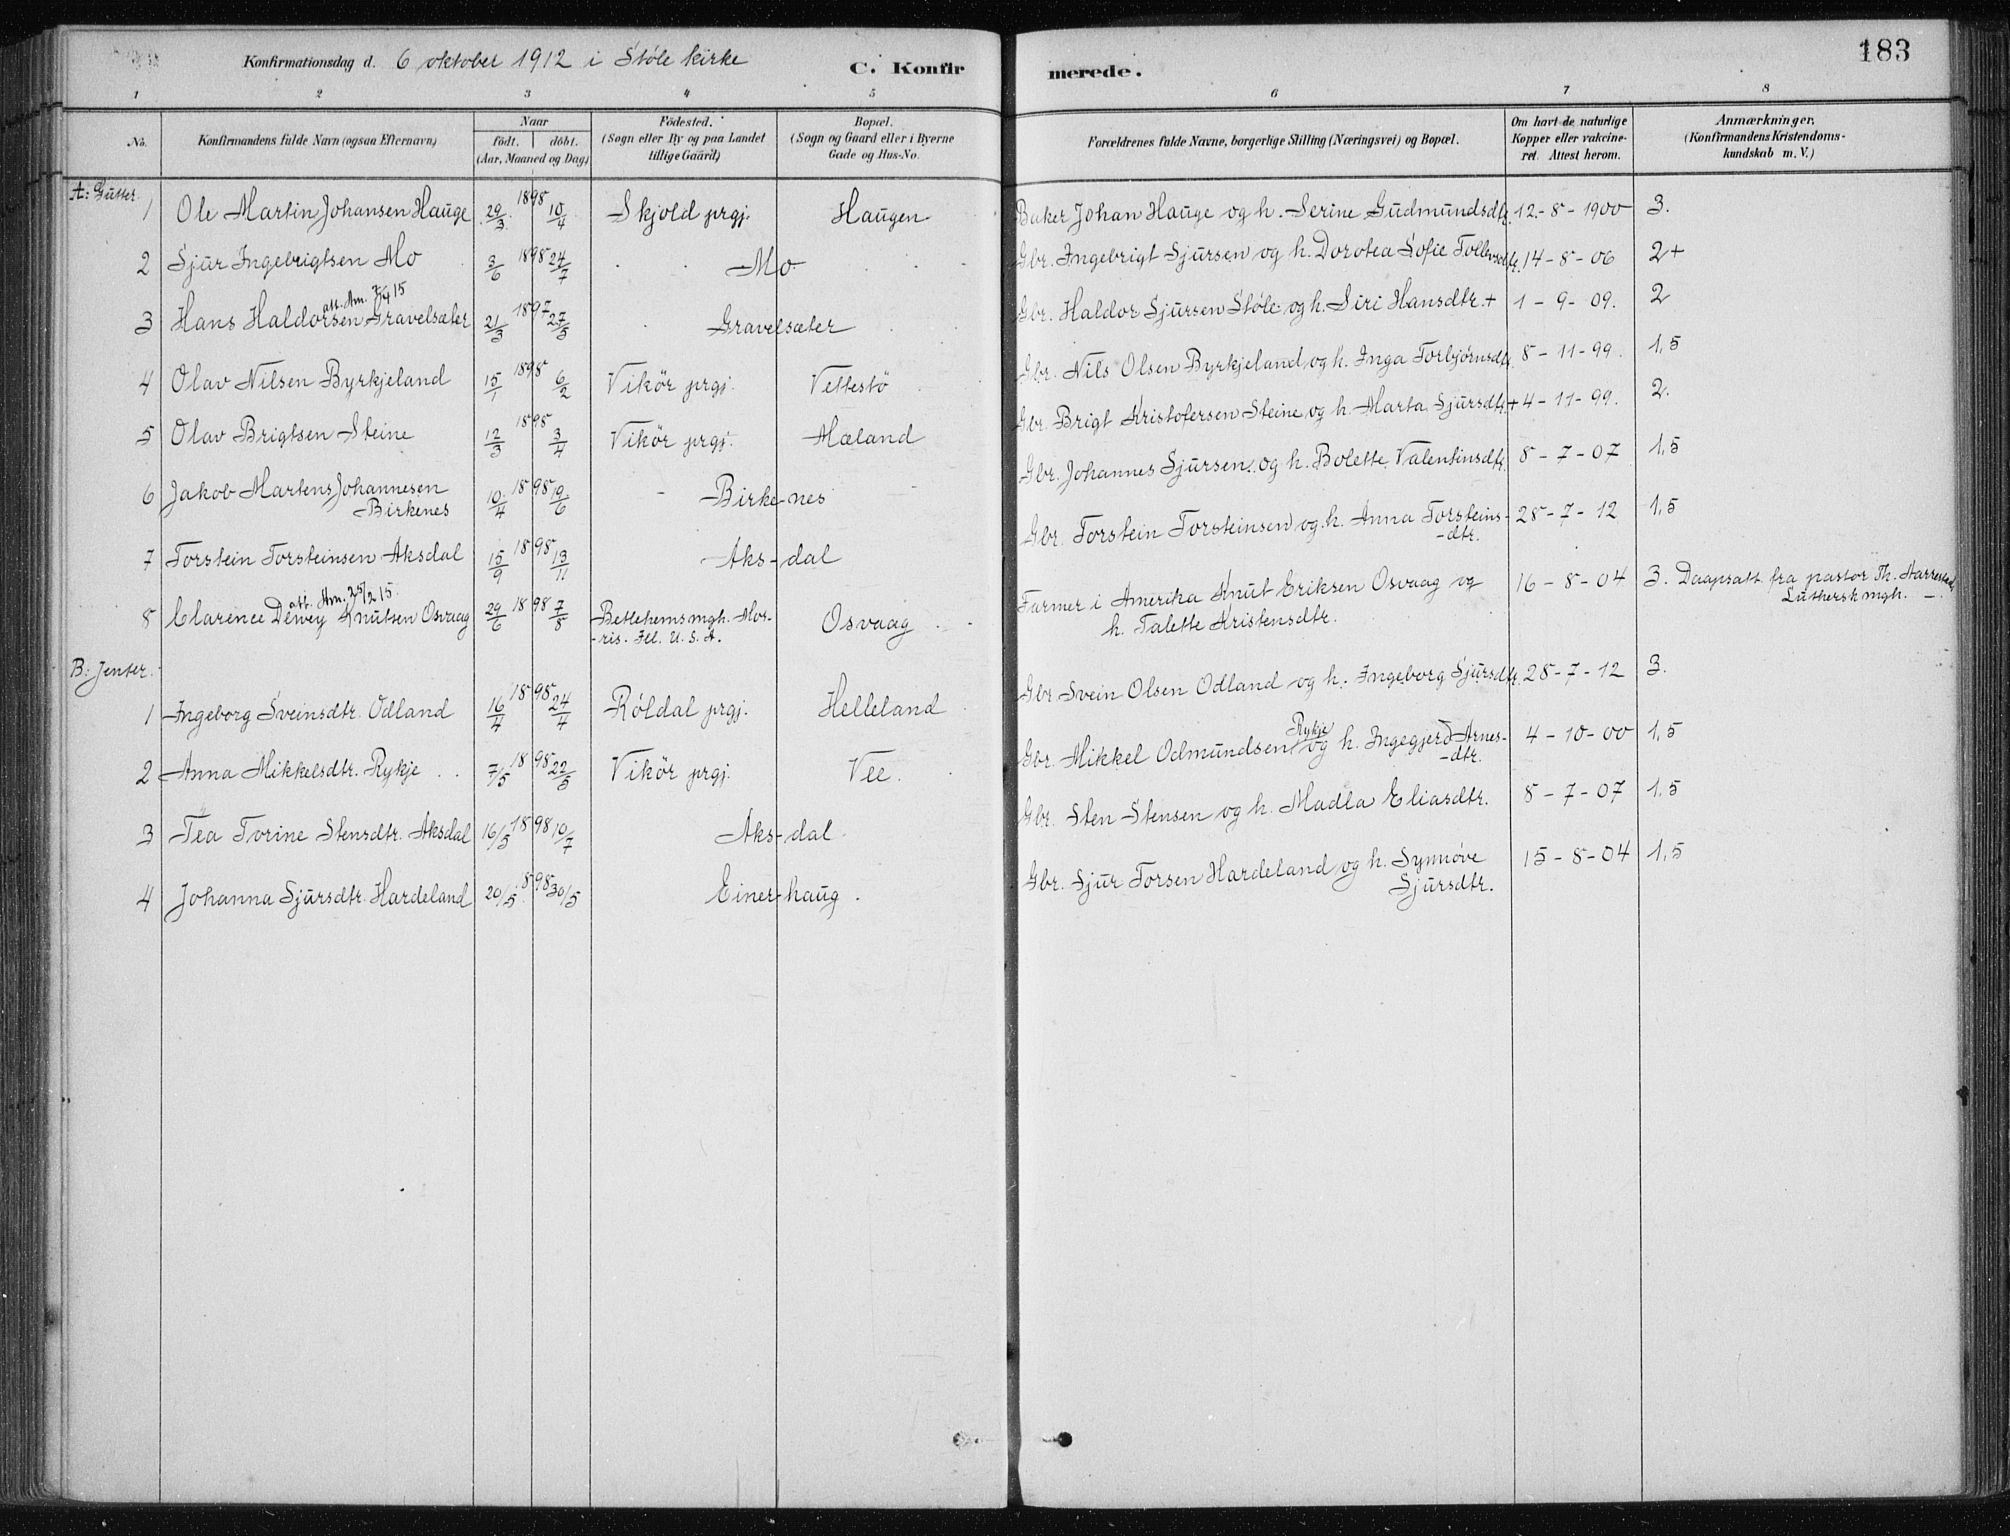 183
Konfirmationsdag d. 6 oktober 1912 i Støle kirke
C. Konfirmerede.
1 2 3 4 5 6 7 8
No.
Konfirmandens fulde Navn (ogsaa Efternavn)
Naar
födt. döbt.
(Aar, Maaned og Dag)
Födested.
(Sogn eller By og paa Landet
tillige Gaard)
Bopæl.
(Sogn og Gaard eller i Byerne
Gade og Hus-No.
Forældrenes fulde Navne, borgerlige Stilling (Næringsvei) og Bopæl.
Om havt de naturlige
Kopper eller vakcine-
ret. Attest herom.
Anmærkninger.
(Konfirmandens Kristendoms-
kundskab m. V.)
A: Gutter.
1 Ole Martin Johansen Hauge 29/3 1898 10/4 Skjold prgj. Haugen Baker Johan Hauge og h. Serine Gudmundsdtr. 12-8-1900 3.
2 Sjur Ingebrigtsen Mo 3/6 1898 24/7 Mo Gbr. Ingebrigt Sjursen og h. Dorotea Sofie Tollevsdtr. 14-8-06 2+
att. Am. 7/4 15
3 Hans Haldorsen Gravelsæter 21/3 1897 27/5 Gravelsæter Gbr. Haldor Sjursen Støle og h. Siri Hansdtr. + 1-9-09. 2
4 Olav Nilsen Byrkjeland 15/1 1898 6/2 Vikör prgj. Vettestö Gbr. Nils Olsen Byrkjeland og h. Inga Torbjørnsdtr. 8-11-99. 1,5
5 Olav Brigtsen Steine 12/3 1898 3/4 Vikör prgj. Mæland Gbr. Brigt Kristofersen Steine og h. Marta Sjursdtr. + 4-11-99. 2.
6 Jakob Martens Johannesen 10/4 1898 19/6 Birkenes Gbr. Johannes Sjursen og h. Bolette Valentinsdtr. 8-7-07 1,5
Birkenes
7 Torstein Torsteinsen Aksdal 15/9 1898 13/11 Aks-dal Gbr. Torstein Torsteinsen og h. Anna Torsteins- 28-7-12 1,5
-dtr.
att. Am. 25/2 15.
8 Clarence Dewey Knutsen Osvaag 29/6 1898 7/8 Betlehemsmgh. Mor- Osvaag Farmer i Amerika Knut Eriksen Osvaag og 16-8-04 3. Daapsatt. fra pastor Th. Aarrestad
-ris. Ill. U.S.A. h. Talette Kristensdtr. Luthersk mgh.
B: Jenter.
1 Ingeborg Sveinsdtr. Odland 16/4 1898 24/4 Röldal prgj. Helleland Gbr. Svein Olsen Odland og h. Ingeborg Sjursdtr. 28-7-12 3.
2 Anna Mikkelsdtr. Rykje 7/5 1898 22/5 Vikör prgj. Vee. Gbr. Mikkel Odmundsen Rykje og h. Ingegjerd Arnes- 4-10-00 1,5
-dtr.
3 Tea Torine Stensdtr. Aksdal 16/5 1898 10/7 Aks-dal Gbr. Sten Stensen og h. Madla Eliasdtr. 8-7-07 1,5
4 Johanna Sjursdtr. Hardeland 20/5 1898 30/5 Einer-haug. Gbr. Sjur Torsen Hardeland og h. Synnöve 15-8-04 1,5
Sjursdtr.